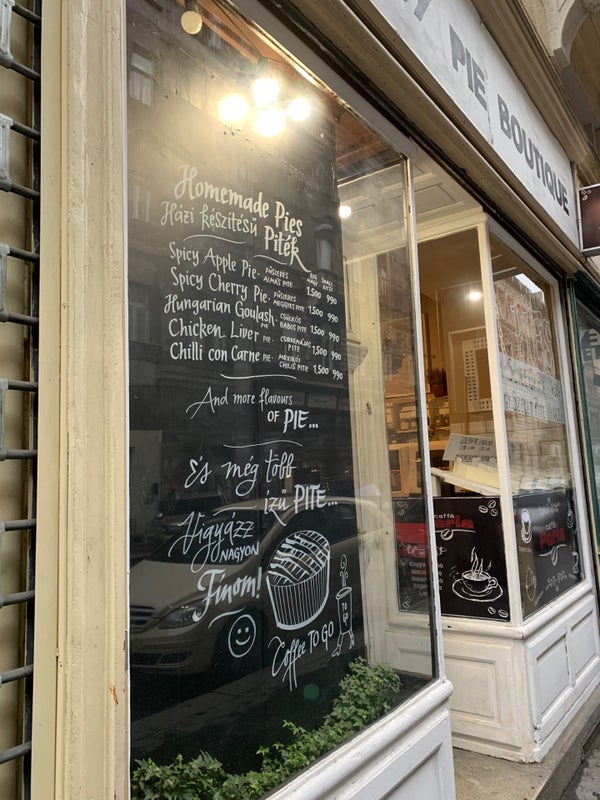 PIE BOUTIQUE
Homemade Pies
Házi készítésű Piték
BIG SMALL
NAGY KICSI
Spicy Apple Pie - FŰSZERES ALMÁS PITE 1.500 990
Spicy Cherry Pie - FŰSZERES MEGGYES PITE 1.500 990
Hungarian Goulash PIE - CSÜLKÖS BABOS PITE 1.500 990
Chicken Liver PIE - CSIRKEMÁJAS PITE 1.500 990
Chilli con Carne PIE - MEXIKÓI CHILIS PITE 1.500 990
And more flavours
OF PIE...
És még több
ízű PITE...
Vigyázz
NAGYON
Finom!
Coffee TO GO
TO GO
caffé
Perla
caffé
Perla